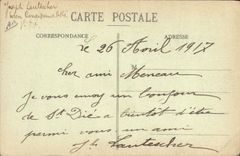 Joseph Lautescher
CARTE POSTALE
CORRESPONDANCE
ADRESSE
le 26 Avril 1917
cher ami Meneau
Je vous envoy un bonjour
de St Dié a bientot d'être
parmi vous un ami
Js Lautescher